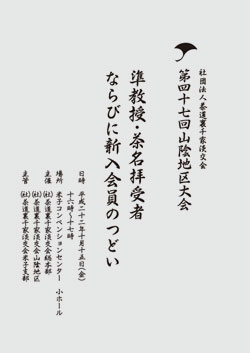 社団法人茶道裏千家淡交会
第四十七回山陰地区大会
準教授・茶名拝受者
ならびに新入会員のつどい
日時 平成二十二年十月十五日(金)
十六時~十七時
場所 米子コンベンションセンター 小ホール
主催 (社)茶道裏千家淡交会総本部
(社)茶道裏千家淡交会山陰地区
主管 (社)茶道裏千家淡交会米子支部